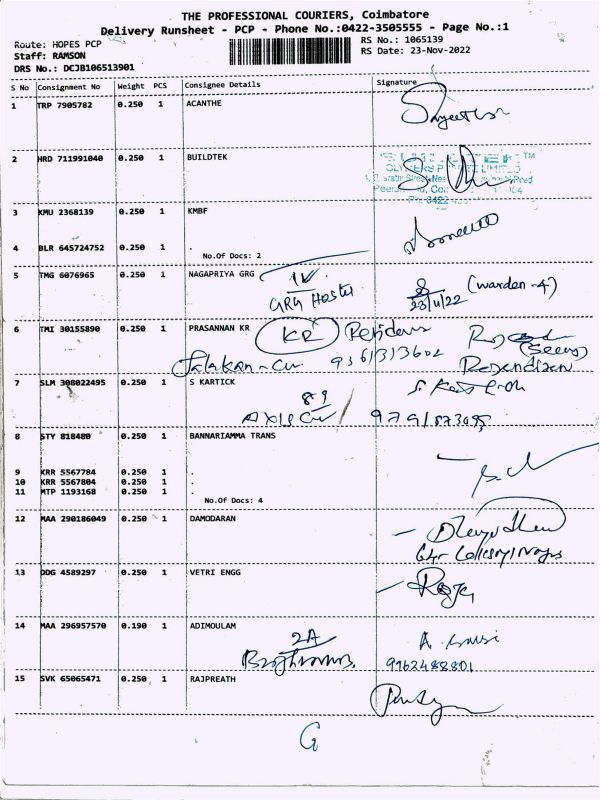 THE PROFESSIONAL COURIERS, Coimbatore
Delivery Runsheet - PCP - Phone No.:0422-3505555 - Page No.:1
Route: HOPES PCP
RS No.: 1065139
Staff: RAMSON
RS Date: 23-Nov-2022
DRS No.: DCJB106513901
S No Consignment No Weight PCS Consignee Details Signature
1 TRP 7905782 0.250 1 ACANTHE
2 HRD 711991040 0.250 1 BUILDTEK
3 KMU 2368139 0.250 1 KMBF
4 BLR 645724752 0.250 1 .
No.Of Docs: 2
5 TMG 6076965 0.250 1 NAGAPRIYA GRG
GRG Hostel
(warden-4)
23/11/22
6 TMI 30155890 0.250 1 PRASANNAN KR
KR
9361313602
7 SLM 308022495 0.250 1 S KARTICK
89
8 STY 818480 0.250 1 BANNARIAMMA TRANS
9 KRR 5567784 0.250 1 .
10 KRR 5567804 0.250 1 .
11 MTP 1193168 0.250 1 .
No.Of Docs: 4
12 MAA 290186049 0.250 1 DAMODARAN
13 DDG 4589297 0.250 1 VETRI ENGG
Raja
14 MAA 296957570 0.190 1 ADIMOULAM
2A
9962488801
15 SVK 65065471 0.250 1 RAJPREATH
G